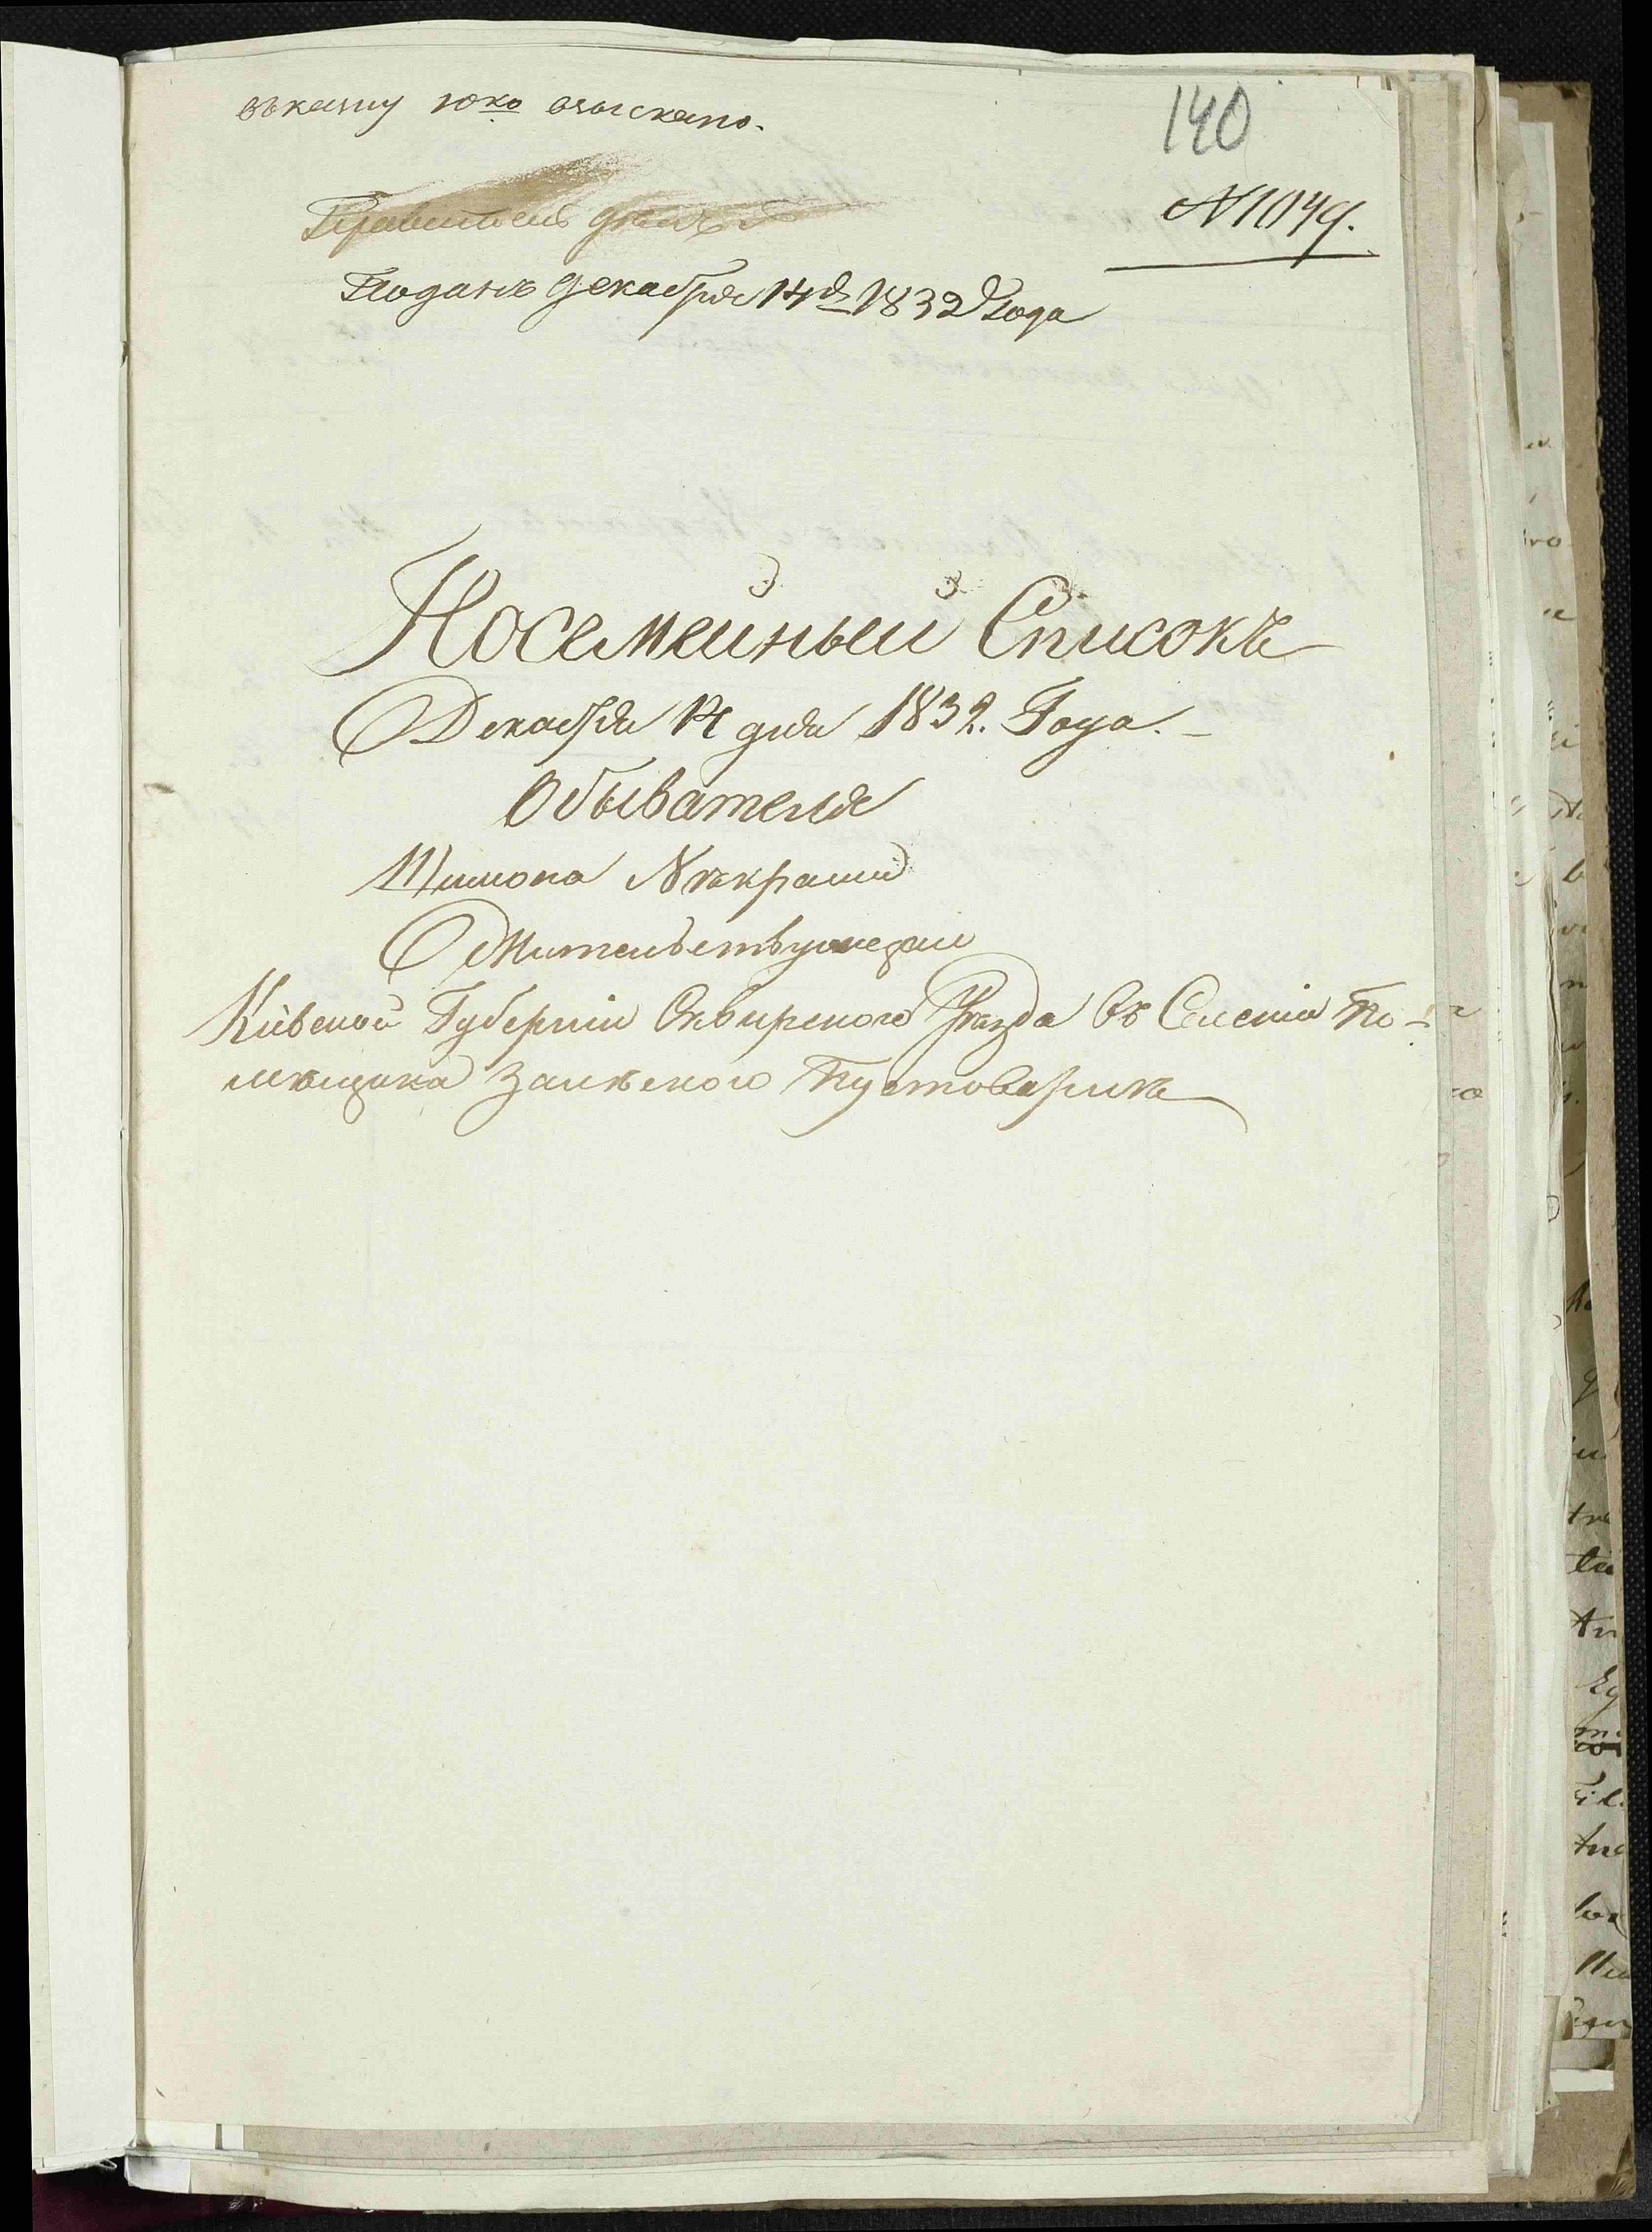 въ казну 10 ко взыскано.
140
N 1049.
Правитель дѣлъ
Поданъ декабря 14 д 1832 Года
Посемейный Списокъ
Декабря 14 дня 1832. Года.
Обывателя
Тимона
Жительствующаго
Кіевской Губерніи Сквирского Уѣзда въ Селеніи По-
мѣщика Залѣского Пустоваркѣ